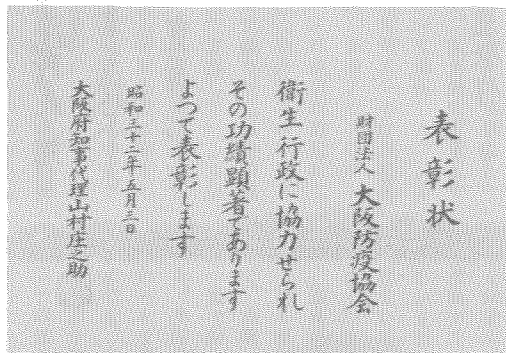 表彰状
財団法人 大阪防疫協会
衛生行政に協力せられ
その功績顕著であります
よつて表彰します
昭和三十二年五月三日
大阪府知事代理山村庄之助